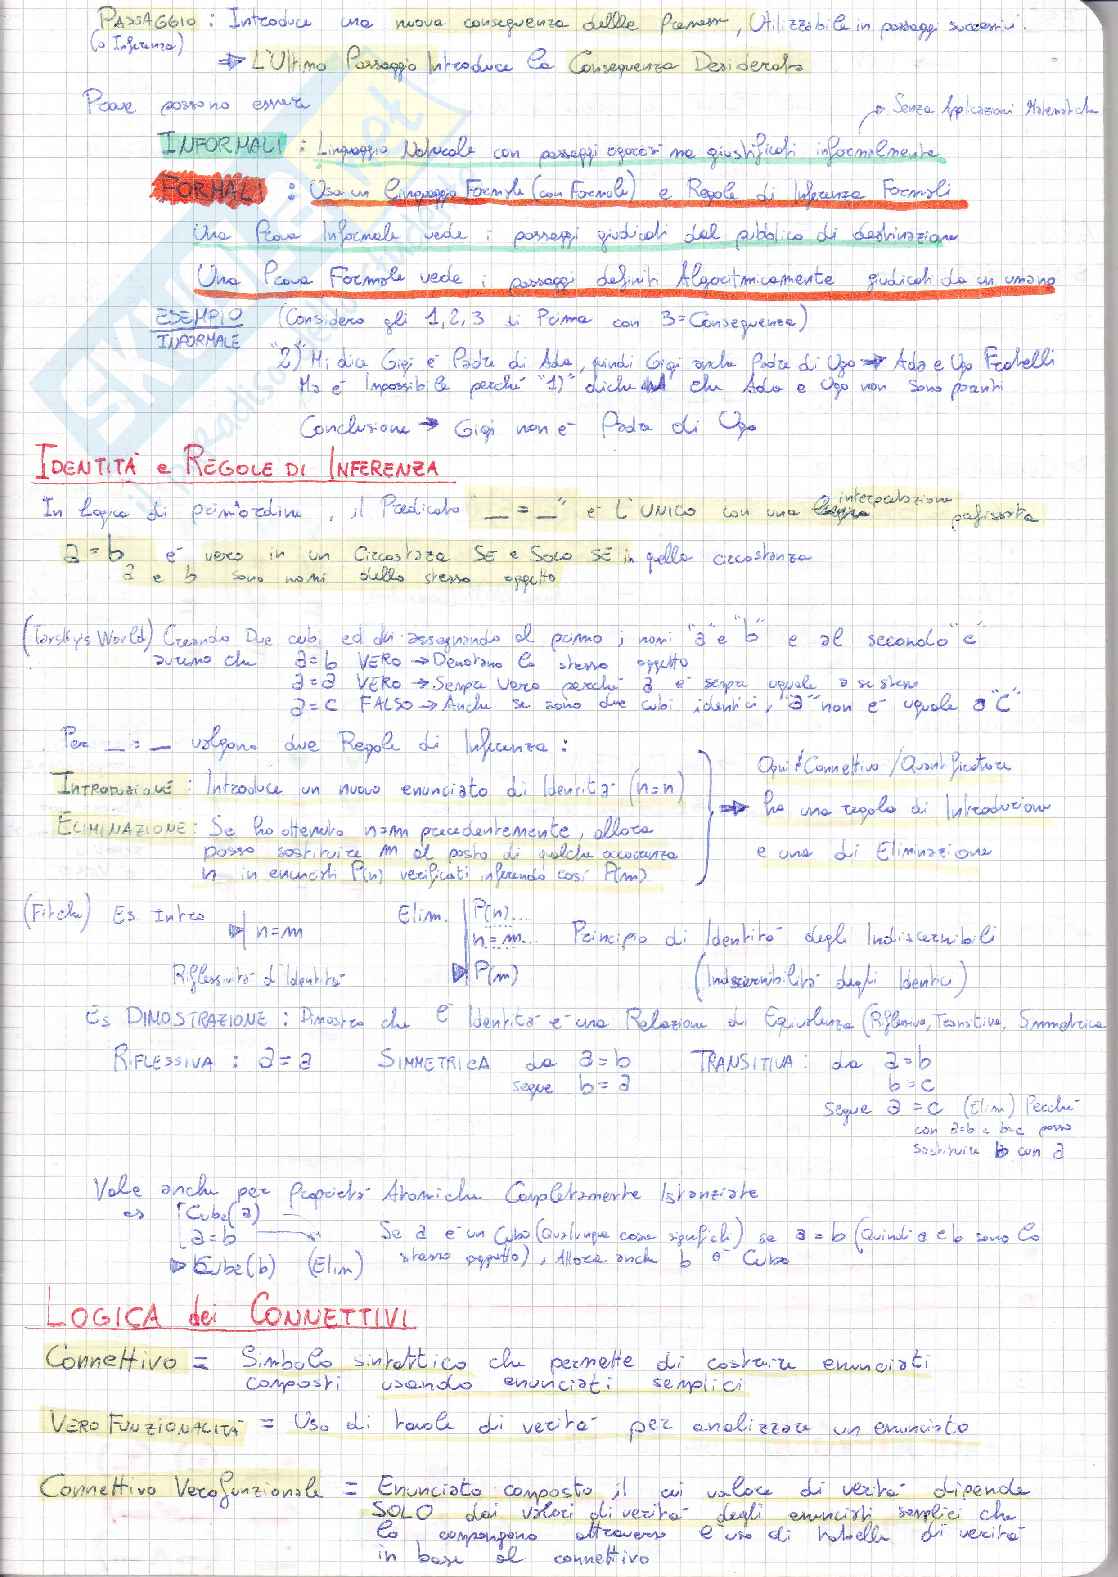 PASSAGGIO : Introduce una nuova conseguenza dellle Premesse, Utilizzabile in passaggi successivi.
(o Inferenza)
→ L'Ultimo Passaggio Introduce la Conseguenza Desiderata
Prove possono essere
→ Senza Applicazioni Matematiche
INFORMALI : Linguaggio Naturale con passaggi rigorosi ma giustificati informalmente
FORMALI : Usa un Linguaggio Formale (con Formule) e Regole di Inferenza Formali
Una Prova Informale vede i passaggi giudicati dal pubblico di destinazione
Una Prova Formale vede i passaggi definiti Algoritmicamente giudicati da un umano
ESEMPIO (Considero gli 1, 2, 3 di Prima con 3 = Conseguenza)
INFORMALE
"2)" Mi dice Gigi è Padre di Ada, quindi Gigi anche Padre di Ugo → Ada e Ugo Fratelli
Ma è Impossibile perché "1)" dice che Ada e Ugo non sono parenti
Conclusione → Gigi non è Padre di Ugo
IDENTITÀ e REGOLE DI INFERENZA
In Logica di prim'ordine, il Predicato "_ = _" è L'UNICO con una interpretazione prefissata
a = b è vero in un Circostaza SE e SOLO SE in quella circostanza
a e b sono nomi dello stesso oggetto
(Tarsky's World) Creando Due cubi ed assegnando al primo i nomi "a" e "b" e al secondo "c"
avremo che a = b VERO → Denotano lo stesso oggetto
a = a VERO → Sempre Vero perché a è sempre uguale a se stesso
a = c FALSO → Anche se sono due cubi identici, "a" non è uguale a "c"
Per _ = _ valgono due Regole di Inferenza :
INTRODUZIONE : Introduce un nuovo enunciato di Identità (n = n)
ELIMINAZIONE : Se ho ottenuto n = m precedentemente, allora
posso sostituire m al posto di qualche occorrenza
n in enunciati P(n) verificati inferendo così P(m)
Ogni Connettivo / Quantificatore
→ ha una regola di Introduzione
e una di Eliminazione
(Fitch) Es Intro
n = m
Riflessività d'Identità
Elim.
P(n)...
n = m...
P(m)
Principio di Identità degli Indiscernibili
(Indiscernibilità degli Identici)
Es DIMOSTRAZIONE : Dimostra che l'Identità è una Relazione di Equivalenza (Riflessiva, Transitiva, Simmetrica
RIFLESSIVA : a = a
SIMMETRICA da a = b
segue b = a
TRANSITIVA : da a = b
b = c
segue a = c (Elim) Perché
con a=b e b=c posso
sostituire b con a
Vale anche per Proprietà Atomiche Completamente Istanziate
es Cube(a)
a = b
Cube(b) (Elim)
Se a è un Cubo (Qualunque cosa significhi) se a = b (Quindi a e b sono lo
stesso oggetto), Allora anche b è Cubo
LOGICA dei CONNETTIVI
Connettivo = Simbolo sintattico che permette di costruire enunciati
composti usando enunciati semplici
VERO FUNZIONALITÀ = Uso di tavole di verità per analizzare un enunciato
Connettivo Verofunzionale = Enunciato composto il cui valore di verità dipende
SOLO dai valori di verità degli enunciati semplici che
lo compongono attraverso l'uso di tabelle di verità
in base al connettivo